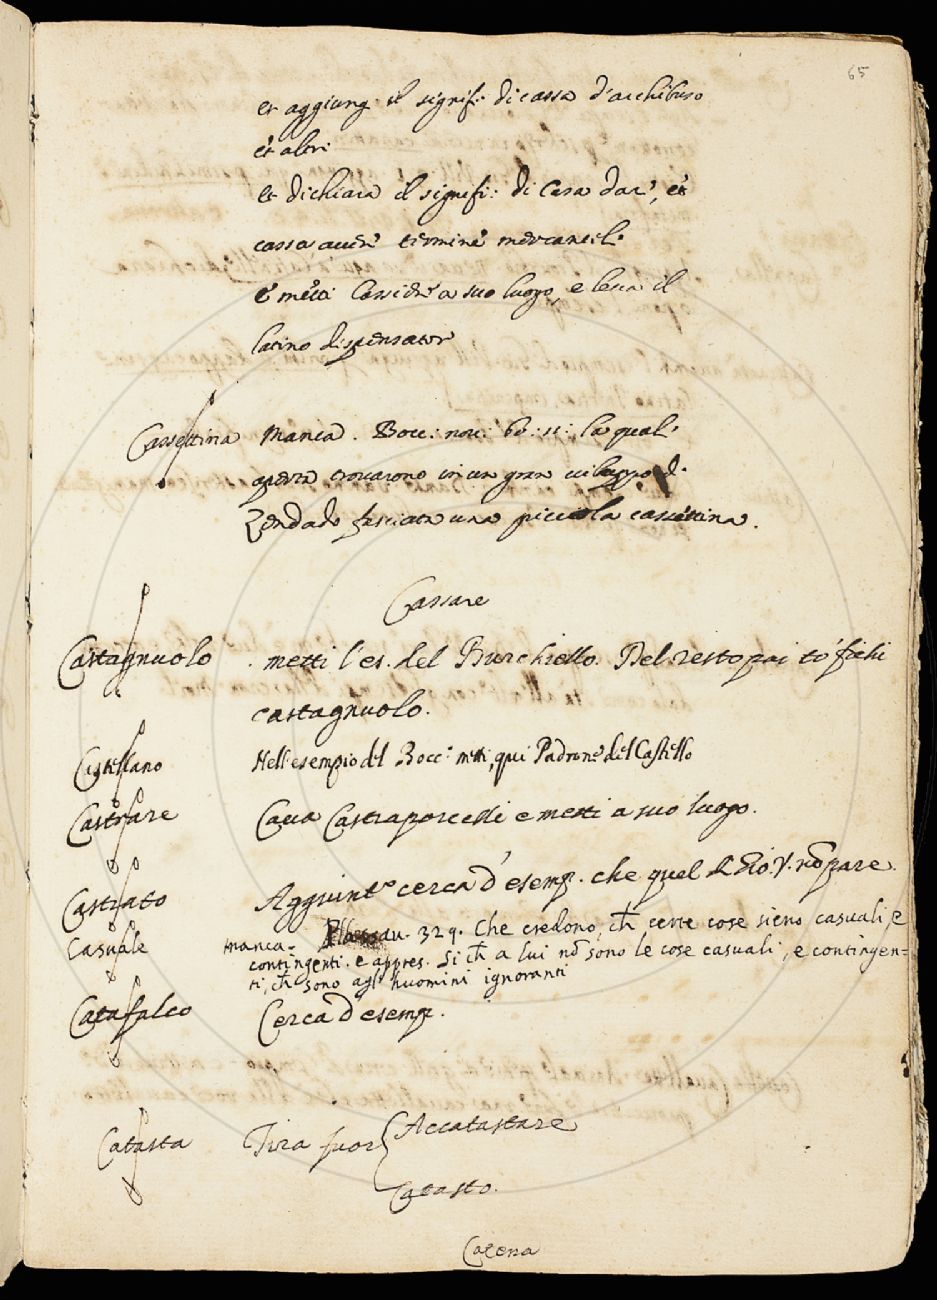 65
et aggiung. il signif. di cassa d'archibuso
et altri
et dichiara il signifi: di Casa dar', et
cassa aver' termine mercantil.
e metti Cassier' a suo luogo, e leva il
latino dispensator
Cassettina manca. Bocc: nov: 60: 11: la qual'
aperta trovarono in un gran viluppo di
Zendado fasciata una picciola cassettina.
Cassare
Castagnuolo . metti l'es. del Burchiello. Del resto poi to' fichi
castagnuolo.
Castellano Nell'esempio del Bocc. metti, qui Padrone del Castello
Castrare Cava Castraporcelli e metti a suo luogo.
Castrato Aggiunto cerca d'esemp. che quel di Gio. V. nō pare
Casuale manca. 329. Che credono, ch̄ certe cose sieno casuali, e
contingenti. e appres. Si ch̄ a lui nō sono le cose casuali, e contingen=
ti, ch̄ sono agl' huomini ignoranti
Catafalco Cerca d'esemp.
Catasta Tira fuor { Accatastare
Catasto.
Catena